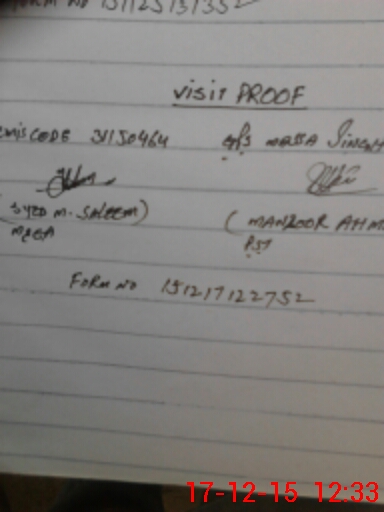 FORM NO 151125151352
visit PROOF
EMISCODE 31150464 GPS MASSA SINGH
(SYED M. SALEEM) (MANZOOR AHM
MEEA PST
FORM NO 151217122752
17-12-15 12:33